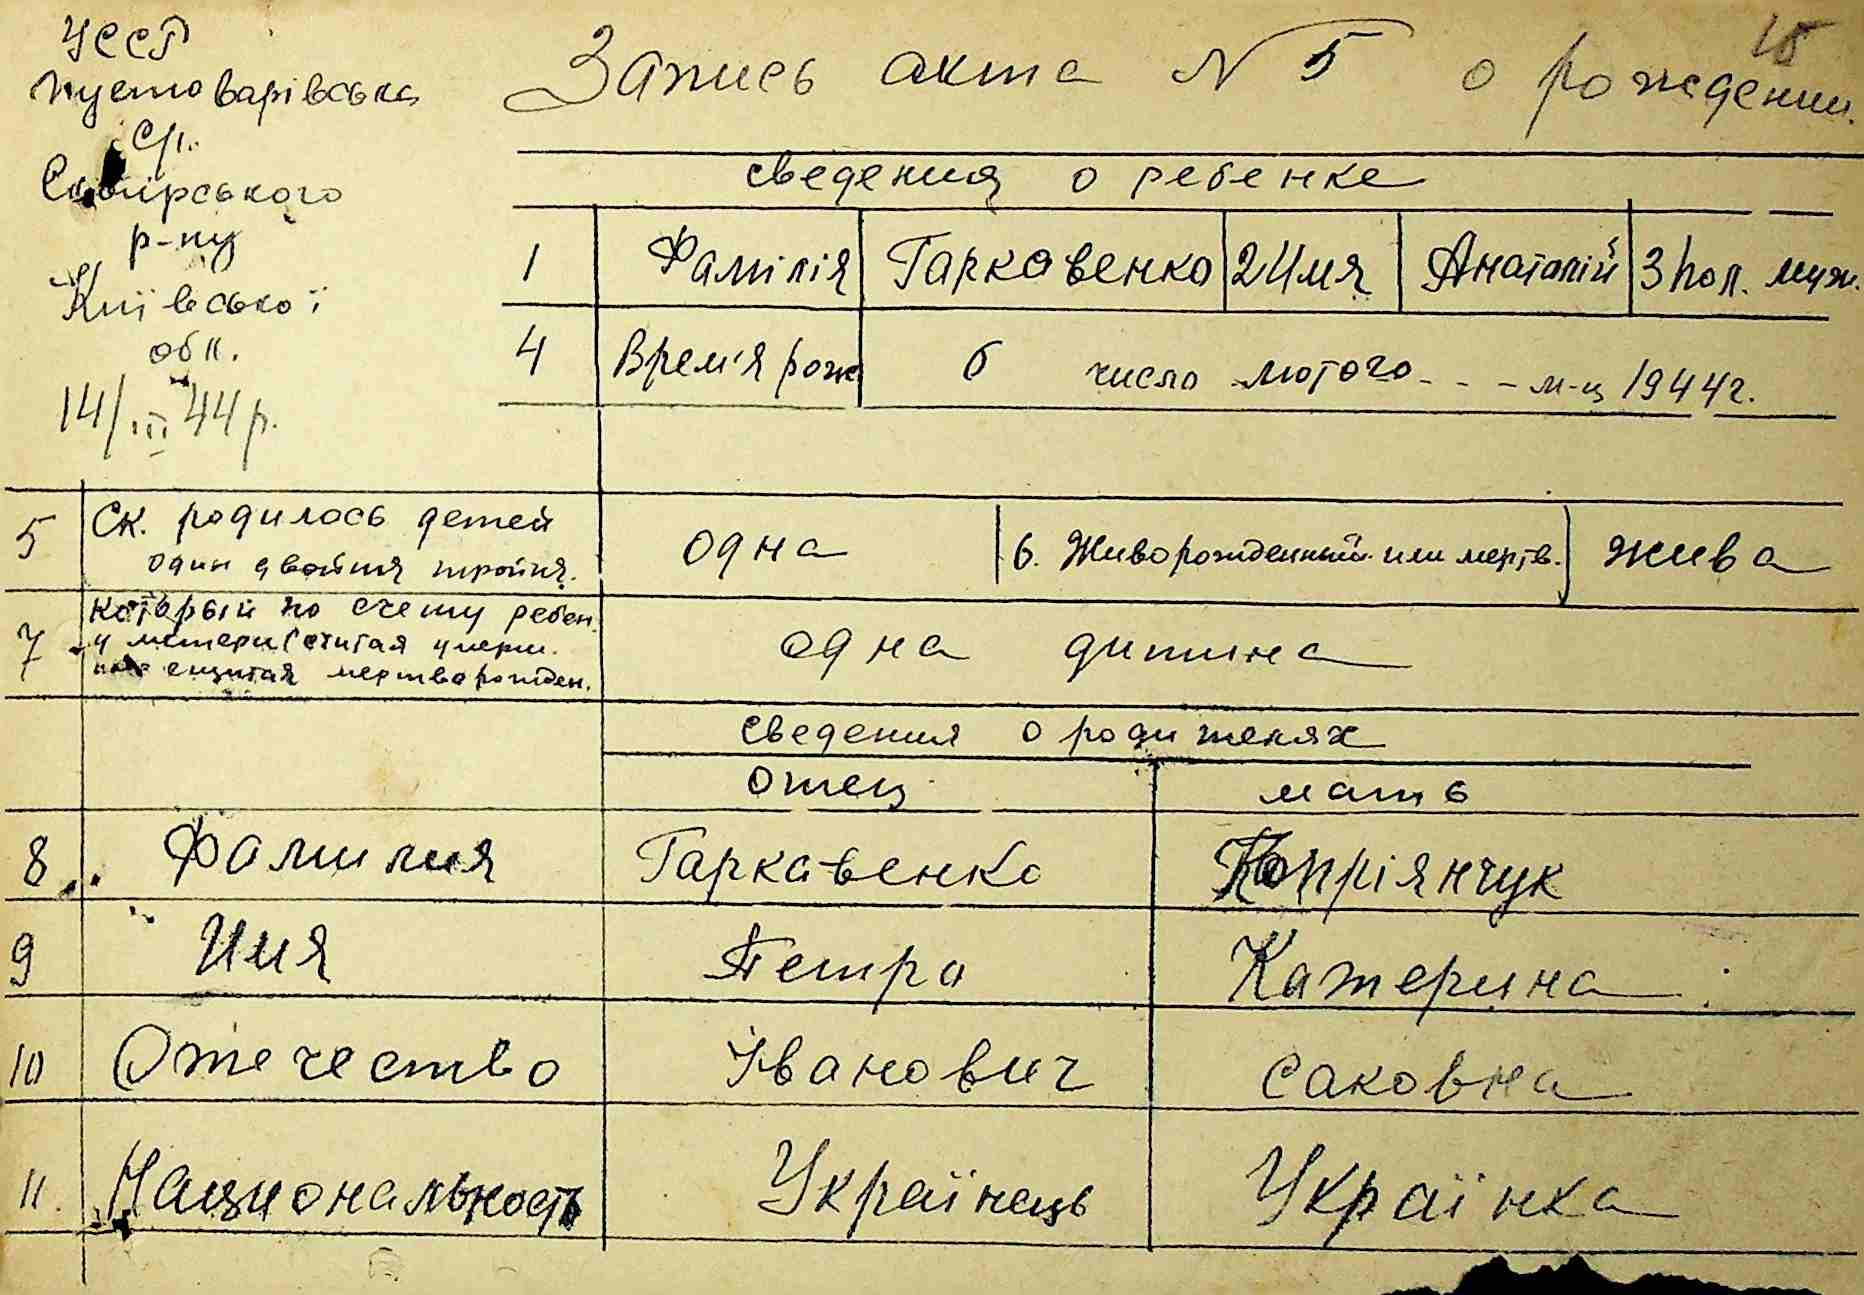 УССР
Пустоварівська
с/р.
Сквирського
р-ну
Київської
обл.
14/III 44 р.
15
Запись акта N 5 о рождении.
сведения о ребенке
1 Фамілія Гаркавенко 2 Имя Анатолій 3 пол. муж.
4 Врем'я рож 6 число лютого - - - м-ц 1944 г.
5 Ск. родилось детей
один двойня тройня. одна 6. Живорожденный или мертв. жива
7 который по счету ребен.
у матери (считая умерш.
считая мертворожден. одна дитина
сведения о родителях
отец мать
8 Фамилия Гаркавенко Копріянчук
9 Имя Петро Катерина
10 Отечество Іванович Саковна
11. Национальность Українець Українка